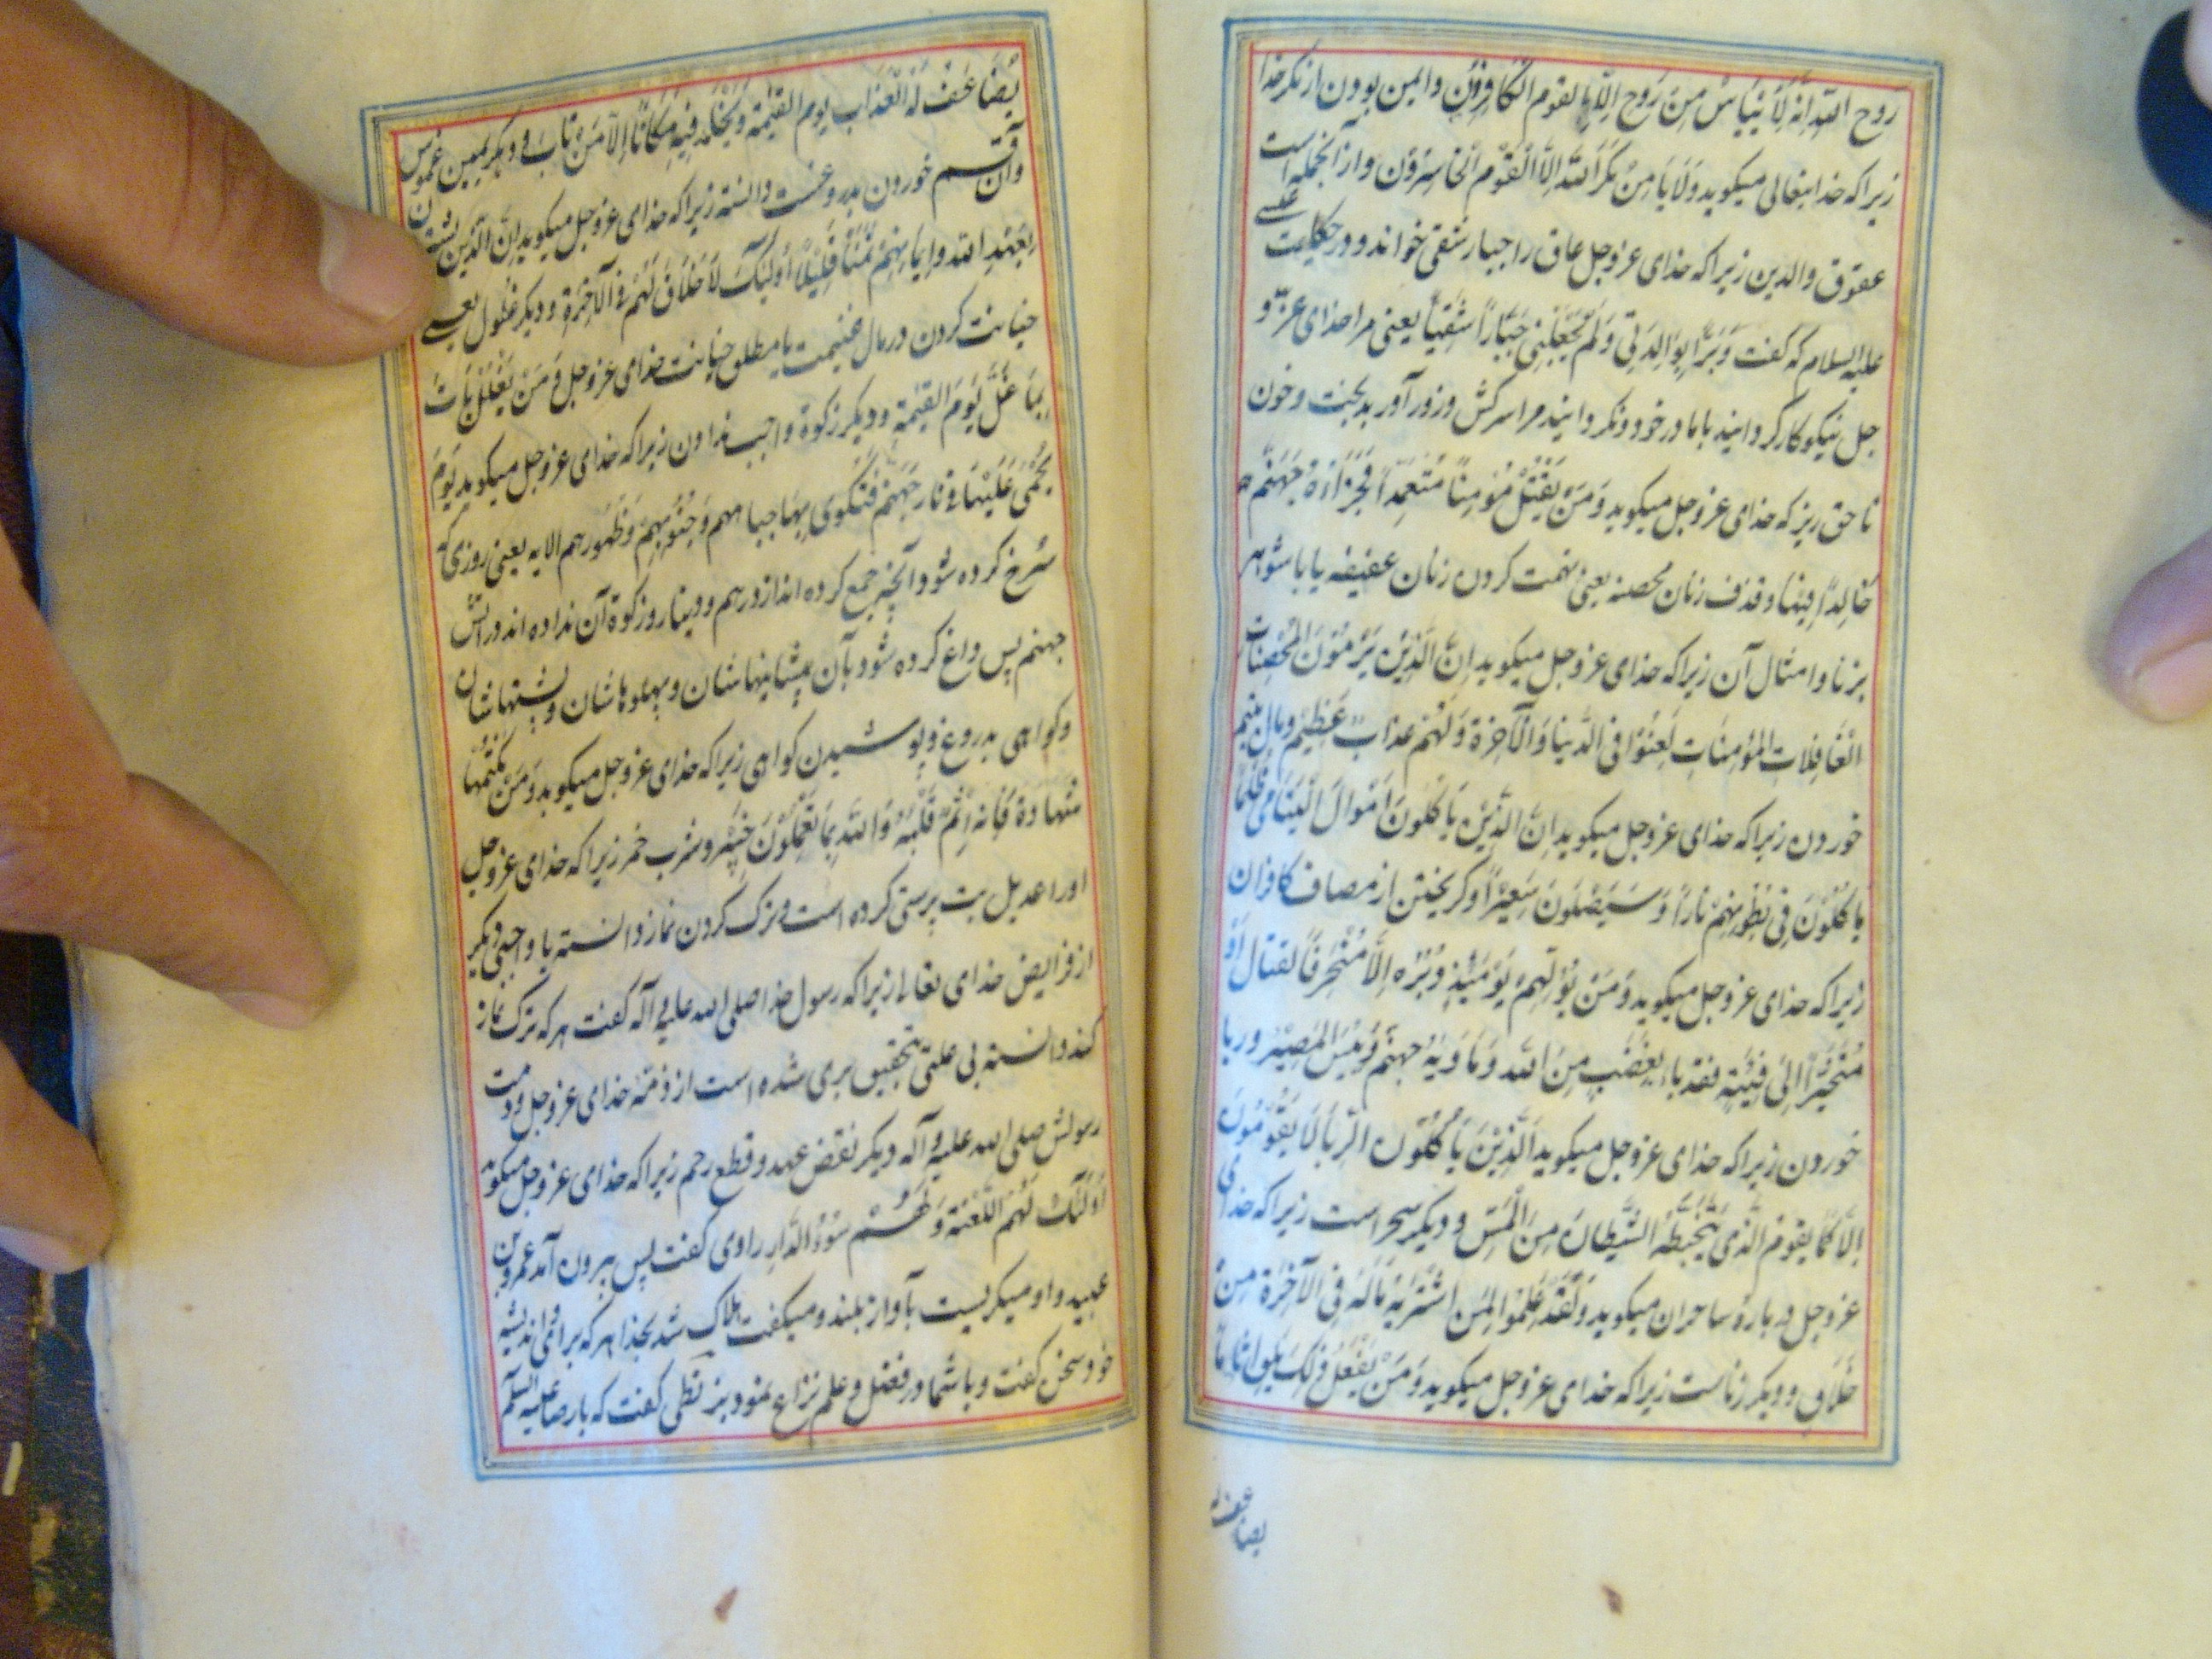 روح الله انه لا ییاس من روح الله الا القوم الکافرون وایمن بودن از مکر خدا
زیرا که خدایتعالی میکوید ولا یامن مکر الله الا القوم الخاسرون واز آنجمله است
عقوق والدین زیرا که خدای عزوجل عاق را جبار شقی خوانده و در حکایت عیسی
علیه السلام که گفت وبرا بوالدتی ولم یجعلنی جبارا شقیا یعنی مرا خدای عز و
جل نیکوکار کردانید با مادر خود ونکردانید مرا سرکش وزورآور بدبخت وخون
ناحق ریز که خدای عزوجل میکوید ومن یقتل مؤمنا متعمدا فجزاؤه جهنم
خالدا فیها وقذف زنان محصنه یعنی تهمت کردن زنان عفیفه یا با شوهر
بزنا وامثال آن زیرا که خدای عزوجل میکوید ان الذین یرمون المحصنات
الغافلات المؤمنات لعنوا فی الدنیا والآخرة ولهم عذاب عظیم ومال یتیم
خوردن زیرا که خدای عزوجل میکوید ان الذین یاکلون اموال الیتامی ظلما
یاکلون فی بطونهم نارا وسیصلون سعیرا وکریختن از مصاف کافران
زیرا که خدای عزوجل میکوید ومن یولهم یومئذ دبره الا متحرفا لقتال او
متحیزا الی فئة فقد باء بغضب من الله وماویه جهنم وبئس المصیر وربا
خوردن زیرا که خدای عزوجل میکوید الذین یاکلون الربا لا یقومون
الا کما یقوم الذی یتخبطه الشیطان من المس ودیکر سحر است زیرا که خدای
عزوجل درباره ساحران میکوید ولقد علموا لمن اشتریه ماله فی الآخرة من
خلاق ودیکر زناست زیرا که خدای عزوجل میکوید ومن یفعل ذلک یلق اثاما
یضاعف له
یضاعف له العذاب یوم القیمة ویخلد فیه مکانا الا من تاب ودیکر یمین غموس
وآن قسم خوردن بدروغست دانسته زیرا که خدای عزوجل میکوید ان الذین یشترون
بعهد الله وایمانهم ثمنا قلیلا اولئک لا خلاق لهم فی الآخرة ودیکر غلول یعنی
خیانت کردن در مال غنیمت یا مطلق خیانت خدای عزوجل ومن یغلل یات
بما غل یوم القیمة ودیکر زکوة واجب ندادن زیرا که خدای عزوجل میکوید یوم
یحمی علیها فی نار جهنم فتکوی بها جباههم وجنوبهم وظهورهم الایه یعنی روزی که
سرخ کرده شود آنچه جمع کرده اند از درهم ودینار وزکوة آن نداده اند در آتش
جهنم پس داغ کرده شود بآن پیشانیهاشان وپهلوهاشان وپشتهاشان
وکواهی بدروغ وپوشیدن کواهی زیرا که خدای عزوجل میکوید ومن یکتمها
شهادة فانه اثم قلبه والله بما تعملون خبیر وشرب خمر زیرا که خدای عزوجل
اورا عدیل بت پرستی کرده است وترک کردن نماز دانسته یا واجبی دیکر
از فرایض خدای تعالی زیرا که رسول خدا صلی الله علیه وآله گفت هر که ترک نماز
کند دانسته بی علتی بتحقیق بری شده است از ذمۀ خدای عزوجل وذمت
رسولش صلی الله علیه وآله دیکر نقض عهد وقطع رحم زیرا که خدای عزوجل میکوید
اولئک لهم اللعنة ولهم سوء الدار راوی گفت پس بیرون آمد عمرو بن
عبید واو میکریست بآواز بلند ومیکفت هلاک شد بخدا هر که برای واندیشه
خود سخن گفت وباشما در فضل وعلم نزاع نمود بزنطی گفت که بارضا علیه السلم